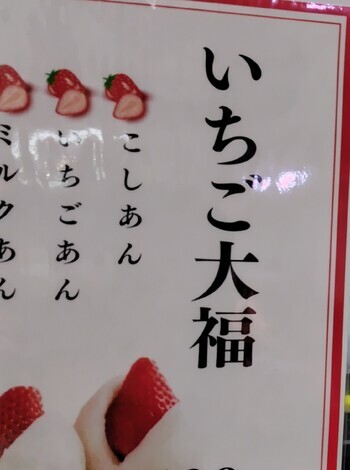 いちご大福
こしあん
いちごあん
ミルクあん